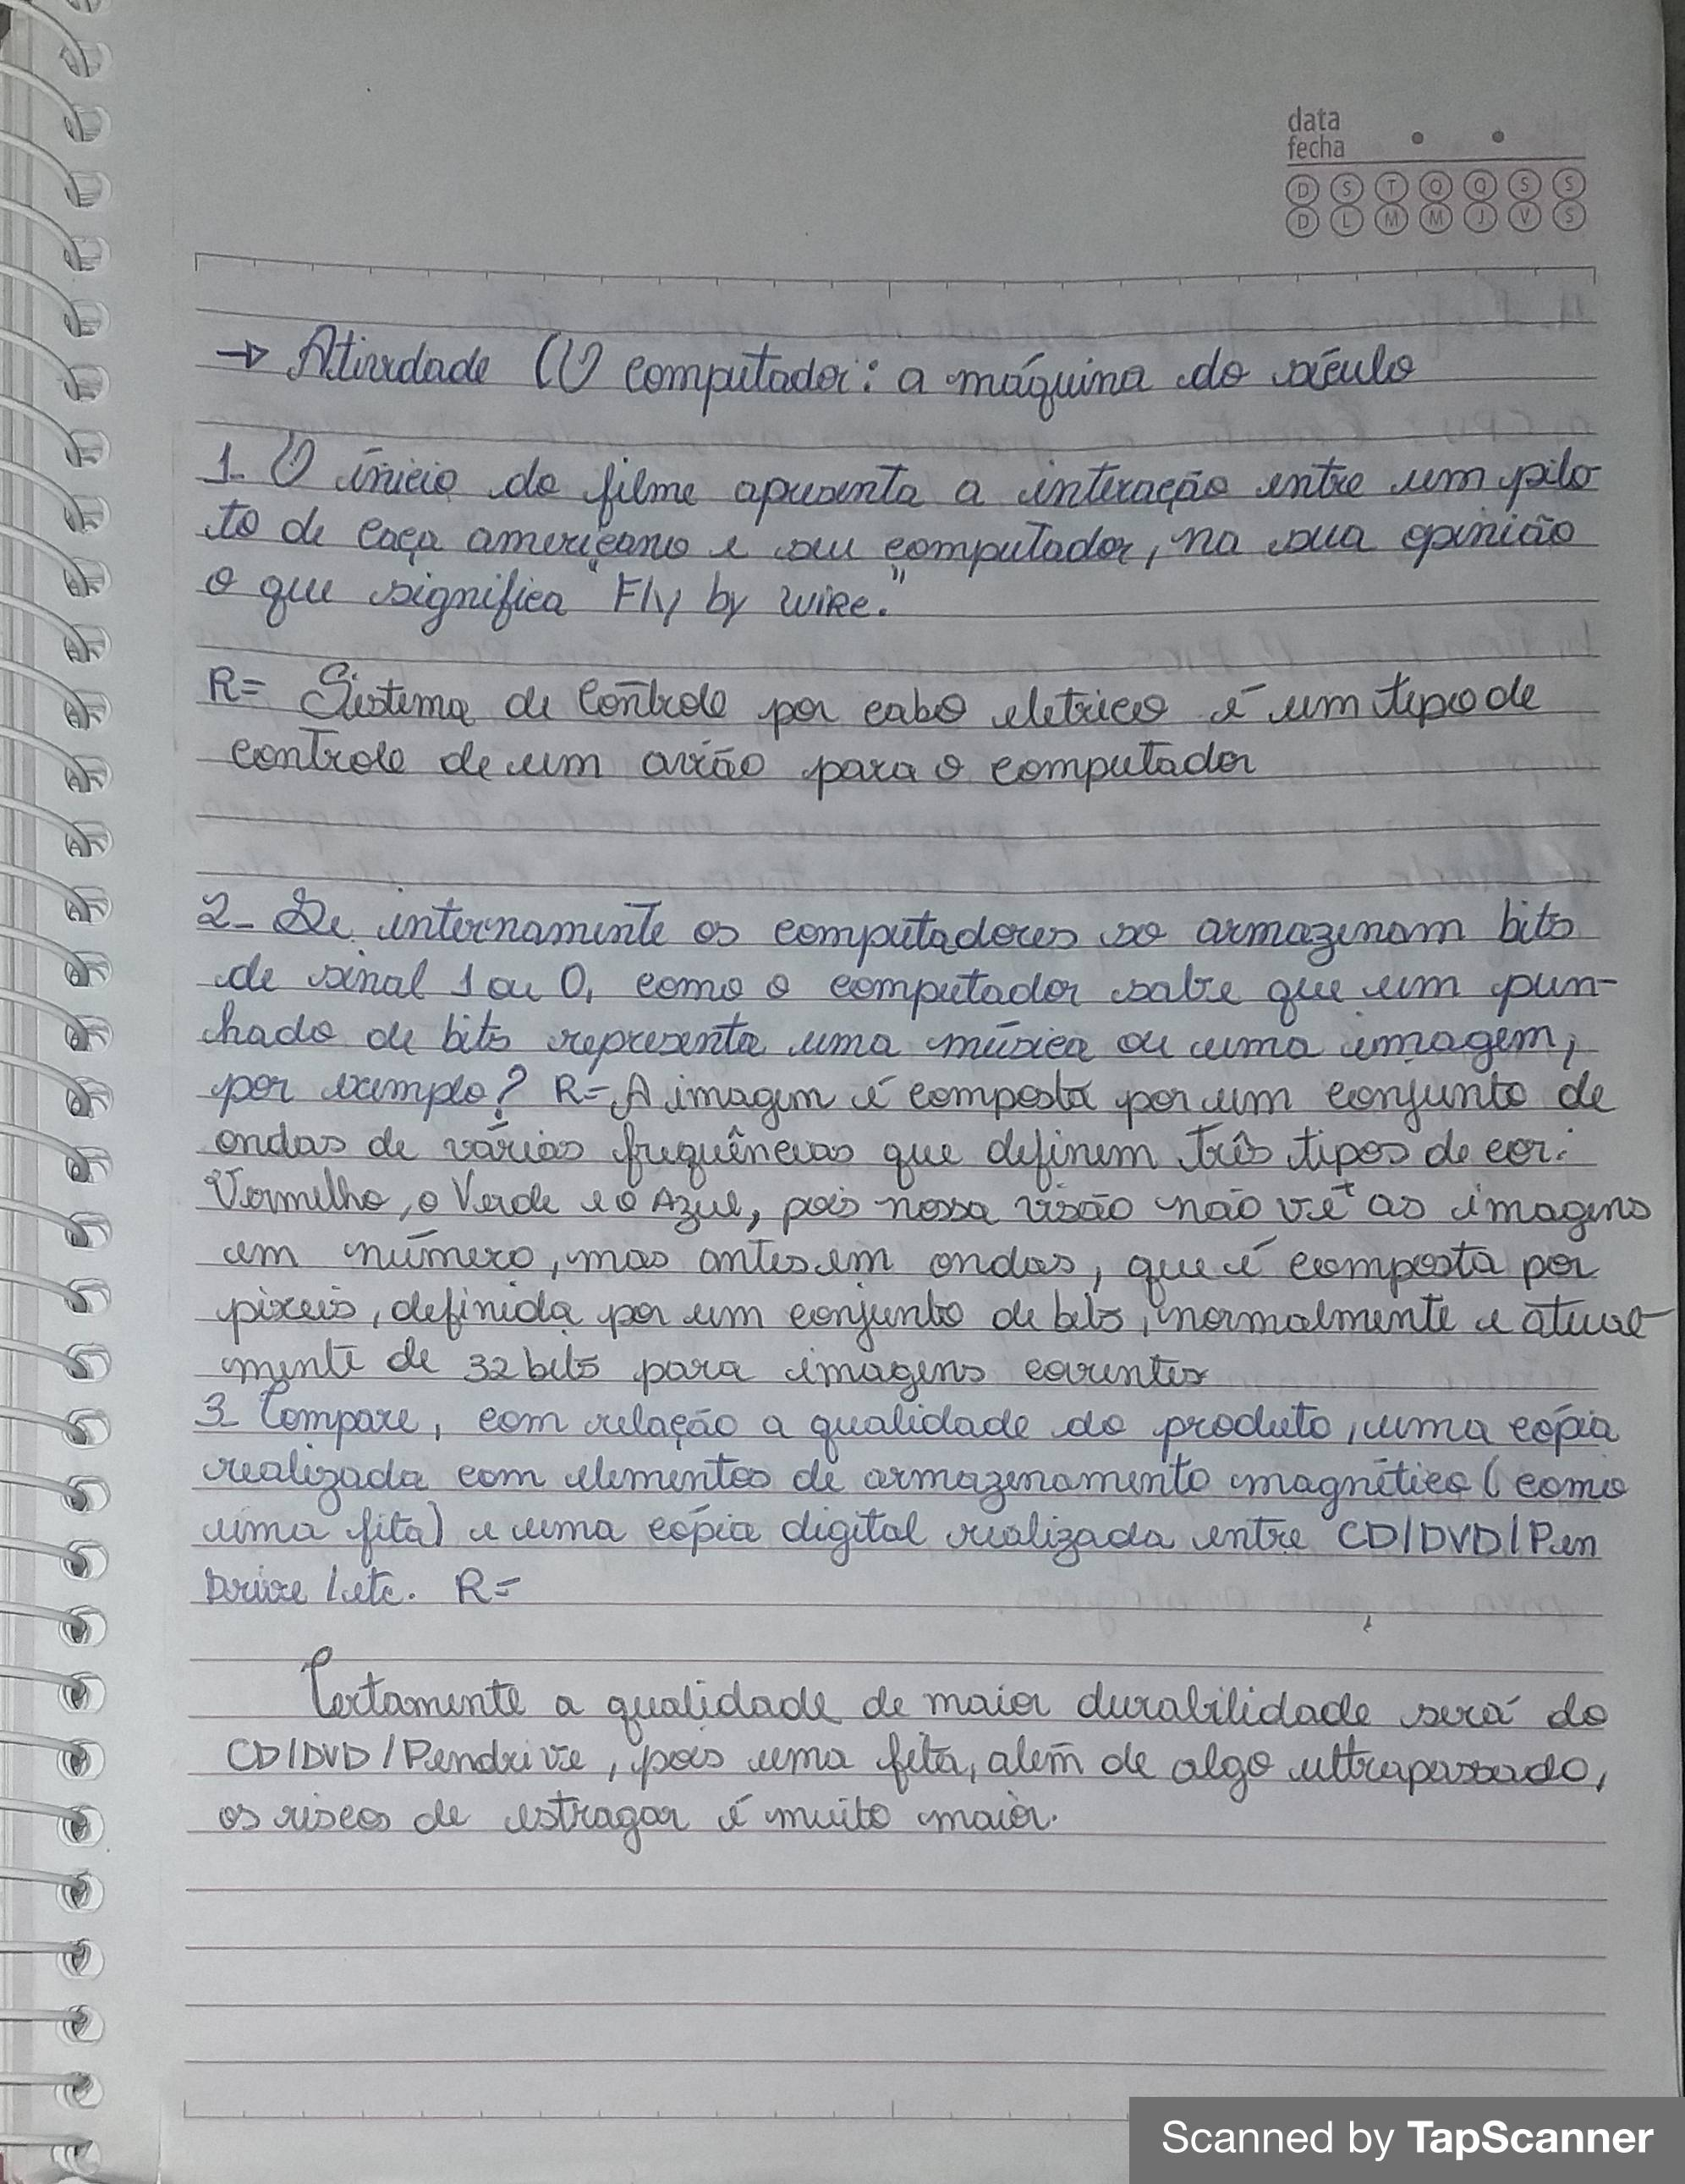 data
fecha
D S T Q Q S S
D L M M J V S
→ Atividade O computador: a máquina do século
1- O ínicio do filme apresenta a interação entre um pilo
to de caça americano e seu computador, na sua opinião
o que significa "Fly by wire."
R= Sistema de Controle por cabo eletrico é um tipo de
controle de um avião para o computador
2- Se internamente os computadores so armazenam bits
de sinal 1 ou 0, como o computador sabe que um pun-
hado de bits representa uma música ou uma imagem,
por exemplo? R= A imagem é composta por um conjunto de
ondas de várias frequências que definem três tipos de cor:
Vermelho, o Verde e o Azul, pois nossa visão não vê as imagens
em número, mas antes em ondas, que é composta por
pixeis, definida por um conjunto de bits, normalmente e atual-
mente de 32 bits para imagens
3- Compare, com relação a qualidade do produto, uma cópia
realizada com elementos de armazenamento magnético (como
uma fita) e uma cópia digital realizada entre CD/DVD/Pen
Drive/etc. R=
Certamente a qualidade de maior durabilidade será do
CD/DVD/Pendrive, pois uma fita, além de algo ultrapassado,
os riscos de estragar é muito maior.
Scanned by TapScanner